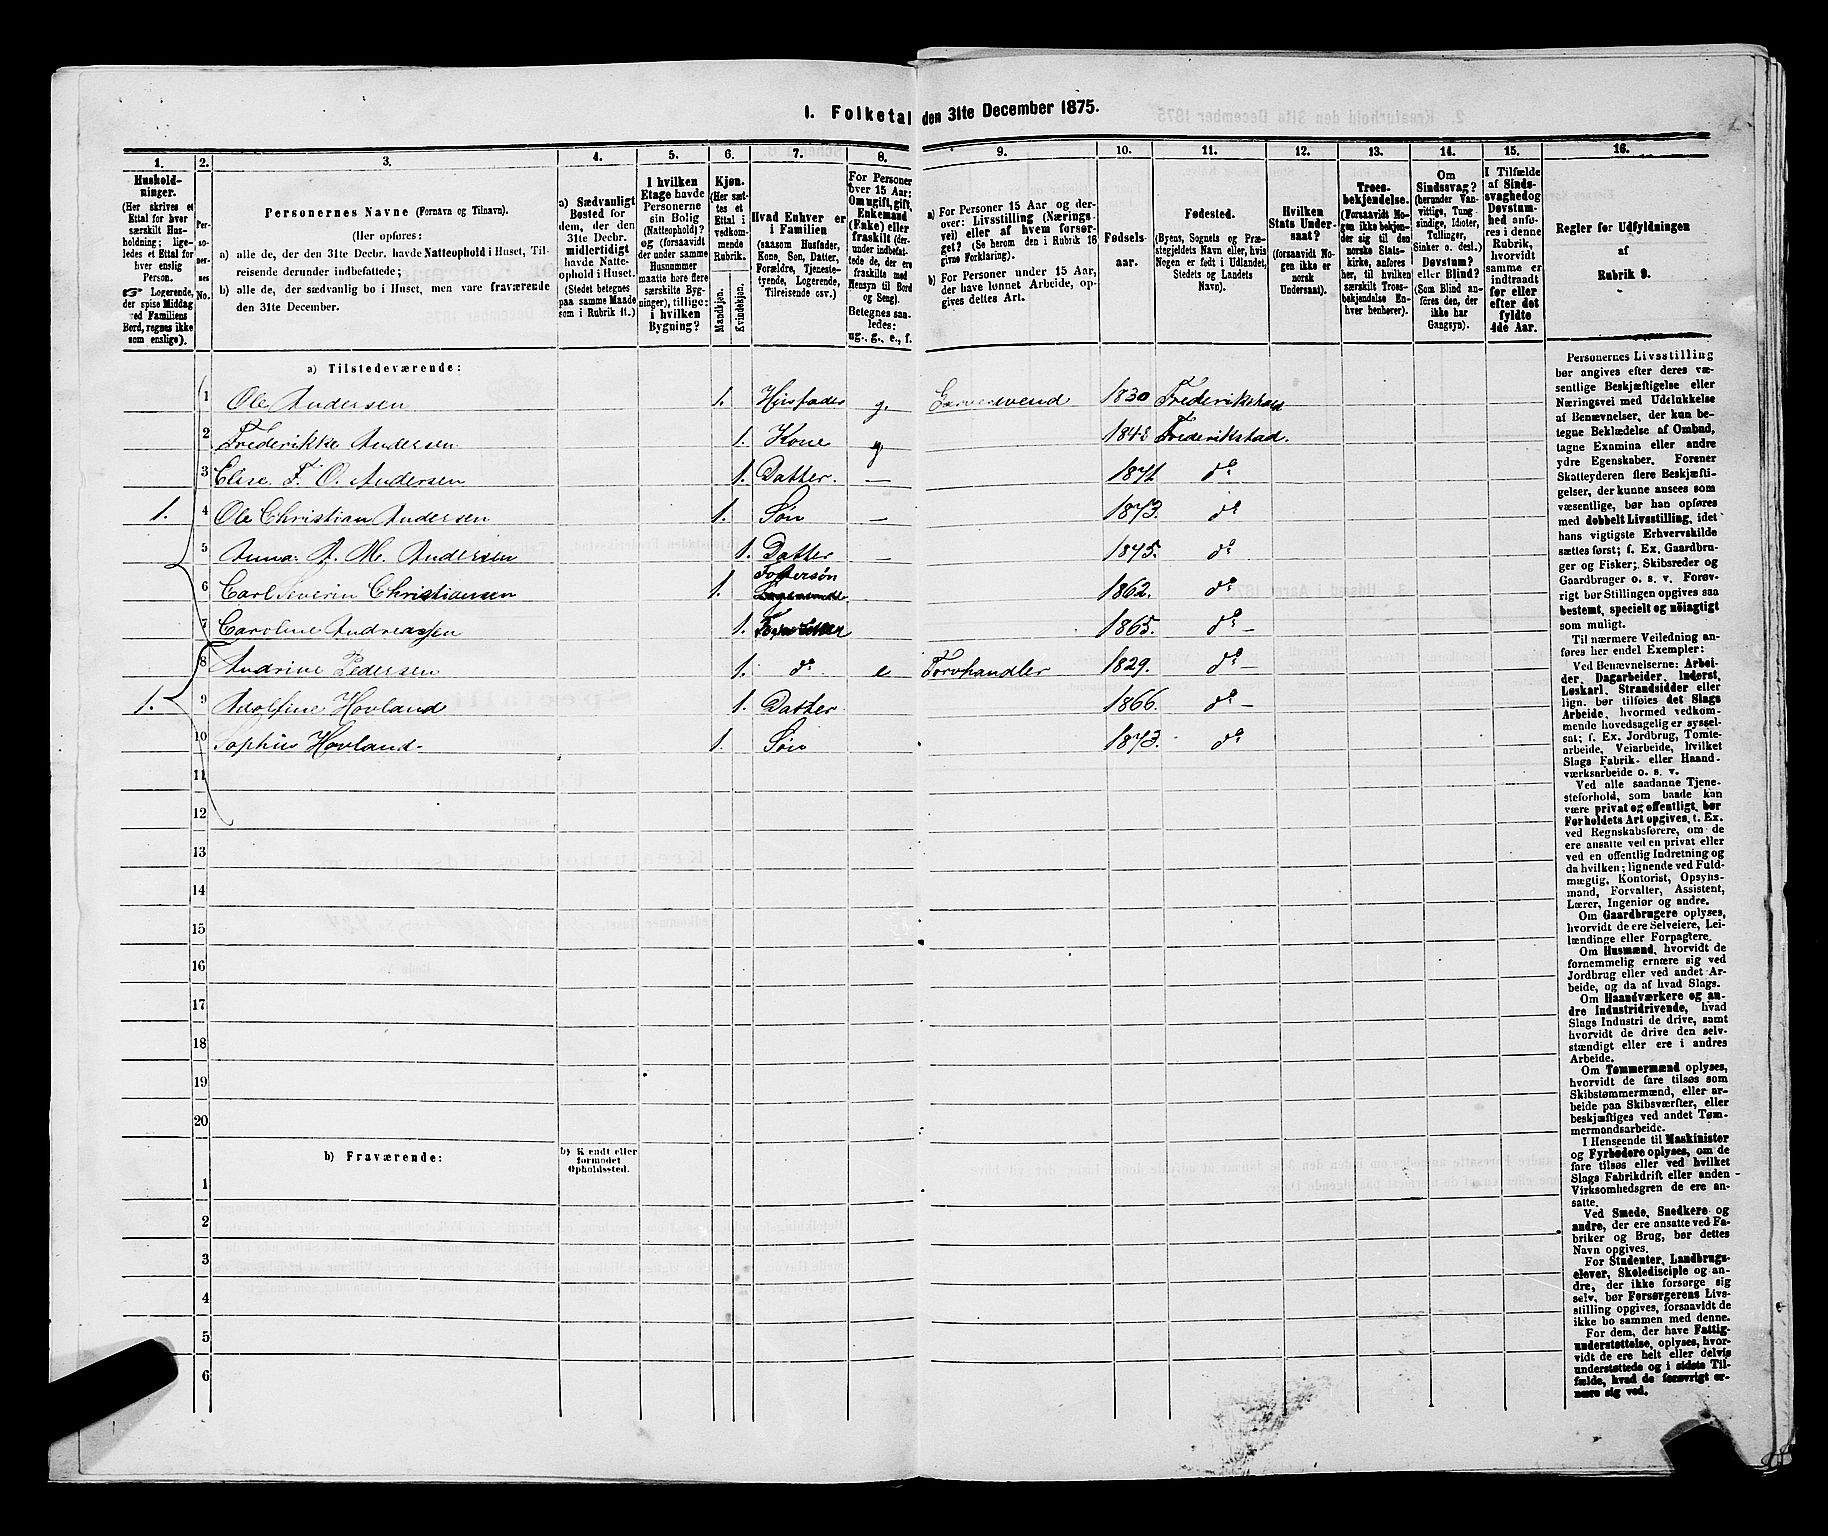 1. Folketal den 31te December 1875.
1. 2. 3. 4. 5. 6. 7. 8. 9. 10. 11. 12. 13. 14. 15. 16.
Hushold-
ninger.
(Her skrives et
Ettal for hver
særskilt Hus-
holdning; lige-
ledes et Ettal for
hver enslig
Person.
☞ Logerende,
der spise Middag
ved Familiens
Bord, regnes ikke
som enslige).
Per-
so-
ner-
nes
No.
Personernes Navne (Fornavn og Tilnavn).
(Her opføres:
a) alle de, der den 31te Decbr. havde Natteophold i Huset, Til-
reisende derunder indbefattede;
b) alle de, der sædvanlig bo i Huset, men vare fraværende
den 31te December.
a) Sædvanligt
Bosted for
dem, der den
31te Decbr.
midlertidigt
havde Natte-
ophold i Huset.
(Stedet betegnes
paa samme Maade
som i Rubrik 11.)
I hvilken
Etage havde
Personerne
sin Bolig
(Natteophold)?
og (forsaavidt
der under samme
Husnummer
maatte høre flere
særskilte Byg-
ninger), tillige:
i hvilken
Bygning?
Kjøn.
(Her sæt-
tes et
Ettal i
vedkom-
mende
Rubrik.
Mandkjøn.
Kvindekjøn.
Hvad Enhver er
i Familien
(saasom Husfader,
Kone, Søn, Datter,
Forældre, Tjeneste-
tyende, Logerende,
Tilreisende osv.).
For Personer
over 15 Aar:
Om ugift, gift,
Enkemand
(Enke) eller
fraskilt (der-
under indbefat-
tede de, der ere
fraskilte med
Hensyn til Bord
og Seng).
Betegnes saa-
ledes:
ug., g., e., f.
a) For Personer 15 Aar og der-
over: Livsstilling (Nærings-
vei) eller af hvem forsør-
get? (Se herom den i Rubrik 16
givne Forklaring).
b) For Personer under 15 Aar,
der have lønnet Arbeide, op-
gives dettes Art.
Fødsels-
aar.
Fødested.
(Byens, Sognets og Præ-
stegjeldets Navn eller, hvis
Nogen er født i Udlandet,
Stedets og Landets
Navn).
Hvilken
Stats Under-
saat?
(forsaavidt No-
gen ikke er
norsk
Undersaat).
Troes-
bekjendelse.
(Forsaavidt No-
gen ikke bekjen-
der sig til den
norske Stats-
kirke, anføres
her, til hvilken
særskilt Troes-
bekjendelse En-
hver henhører).
Om
Sindssvag?
(herunder Van-
vittige, Tung-
sindige, Idioter,
Tullinger,
Sinker o. desl.)
Døvstum?
eller Blind?
(Som Blind an-
føres den, der
ikke har
Gangsyn).
I Tilfælde
af Sinds-
svaghed og
Døvstum-
hed anfø-
res i denne
Rubrik,
hvorvidt
samme er
indtraadt
før eller
efter det
fyldte
4de Aar.
Regler for Udfyldningen
af
Rubrik 9.
a) Tilstedeværende:
1 Ole Andersen 1. Husfader g. 1830 Frederikshald
2 Frederikke Andersen 1. Kone g Frederikstad.
3 Elise F. O. Andersen 1. Datter. — 1871. do
1. 4 Ole Christian Andersen 1. Søn — 1873. do
5 Anna A. M. Andersen 1. Datter — 1845. do
6 Carl Severin Christiansen 1. Fostersøn 1862. do
7 Caroline Andreassen 1. 1865. do —
8 Andrine Pedersen 1. do e Torvhandler 1829. do —
1. 9 Adolfine Hovland 1. Datter 1866. do —
10 Sophus Hovland 1. Søn 1873. do
11
12
13
14
15
16
17
18
19
20
b) Fraværende:
b) Kjendt eller
formodet
Opholdssted.
1
2
3
4
5
6
Personernes Livsstilling
bør angives efter deres væ-
sentlige Beskjæftigelse eller
Næringsvei med Udelukkelse
af Benævnelser, der kun be-
tegne Beklædelse af Ombud,
tagne Examina eller andre
ydre Egenskaber. Forener
Skatteyderen flere Beskjæfti-
gelser, der kunne ansees som
væsentlige, bør han opføres
med dobbelt Livsstilling, idet
hans vigtigste Erhvervskilde
sættes først; f. Ex. Gaardbru-
ger og Fisker; Skibsreder og
Gaardbruger o. s. v. Forøv-
rigt bør Stillingen opgives saa
bestemt, specielt og nøiagtigt
som muligt.
Til nærmere Veiledning an-
føres her endel Exempler:
Ved Benævnelserne: Arbei-
der, Dagarbeider, Inderst,
Løskarl, Strandsidder eller
lign. bør tilføies det Slags
Arbeide, hvormed vedkom-
mende hovedsagelig er syssel-
sat; f. Ex. Jordbrug, Tomte-
arbeide, Veiarbeide, hvilket
Slags Fabrik- eller Haand-
værksarbeide o. s. v.
Ved alle saadanne Tjene-
steforhold, som baade kan
være privat og offentligt, bør
Forholdets Art opgives, t. Ex.
ved Regnskabsførere, om de
ere ansatte ved en privat eller
ved en offentlig Indretning og
da hvilken; lignende ved Fuld-
mægtig, Kontorist, Opsyns-
mand, Forvalter, Assistent,
Lærer, Ingeniør og andre.
Om Gaardbrugere oplyses,
hvorvidt de ere Selveiere, Lei-
lændinge eller Forpagtere.
Om Husmænd, hvorvidt de
fornemmelig ernære sig ved
Jordbrug eller ved andet Ar-
beide, og da af hvad Slags.
Om Haandværkere og an-
dre Industridrivende, hvad
Slags Industri de drive, samt
hvorvidt de drive den selv-
stændigt eller ere i andres
Arbeide.
Om Tømmermænd oplyses,
hvorvidt de fare tilsøs som
Skibstømmermænd, eller ar-
beide paa Skibsværfter, eller
beskjæftiges ved andet Tøm-
mermandsarbeide.
I Henseende til Maskinister
og Fyrbødere oplyses, om de
fare tilsøs eller ved hvilket
Slags Fabrikdrift eller anden
Virksomhedsgren de ere an-
satte.
Ved Smede, Snedkere og
andre, der ere ansatte ved Fa-
briker og Brug, bør dettes
Navn opgives.
For Studenter, Landbrugs-
elever, Skoledisciple og an-
dre, der ikke forsørge sig
selv, bør Forsørgerens Livs-
stilling opgives, forsaavidt de
ikke bo sammen med denne.
For dem, der have Fattig-
understøttelse, oplyses, hvor-
vidt de ere helt eller delvis
understøttede og i sidste Til-
fælde, hvad de forøvrigt er-
nære sig ved.